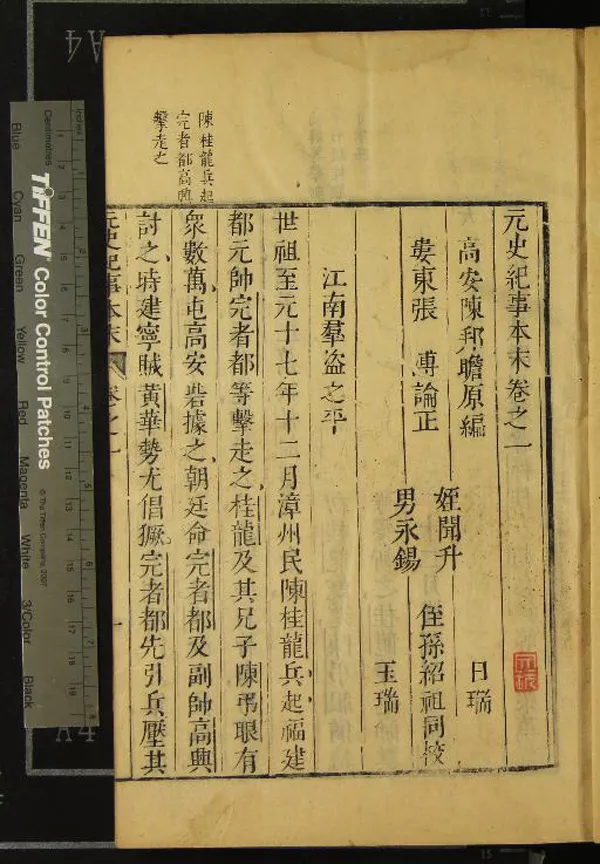 元史紀事本末卷之一
高安陳邦瞻原編
婁東張溥論正
姪聞升
男永錫
侄孫紹祖同校
日瑞
玉瑞
江南羣盜之平
世祖至元十七年十二月漳州民陳桂龍兵起福建
都元帥完者都等擊走之桂龍及其兄子陳弔眼有
衆數萬屯高安砦據之朝廷命完者都及副帥高興
討之時建寧賊黃華勢尤倡獗完者都先引兵壓其
元史紀事本末 卷之一 一
陳桂龍兵起
完者都高興
擊走之
Centimetres
Inches
TIFFEN Color Control Patches
© The Tiffen Company, 2007
Blue
Cyan
Green
Yellow
Red
Magenta
White
3/Color
Black
A4